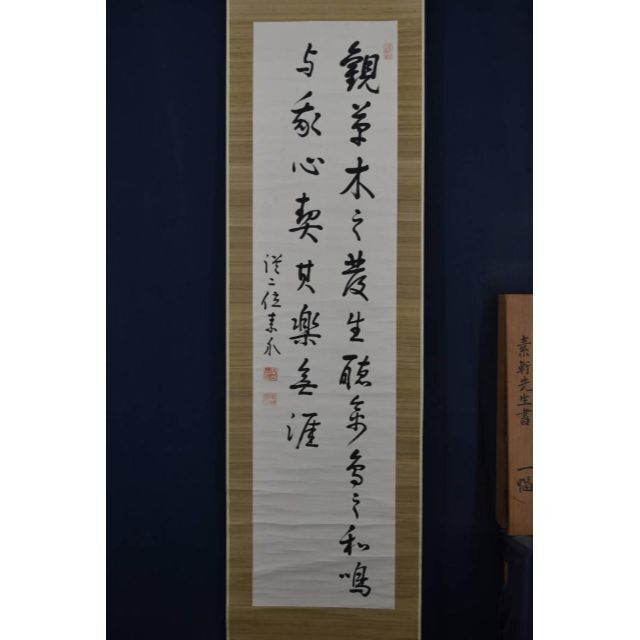 觀草木之發生聽禽鳥之和鳴
与我心契其樂無涯
從二位素介
素軒先生書 一幅